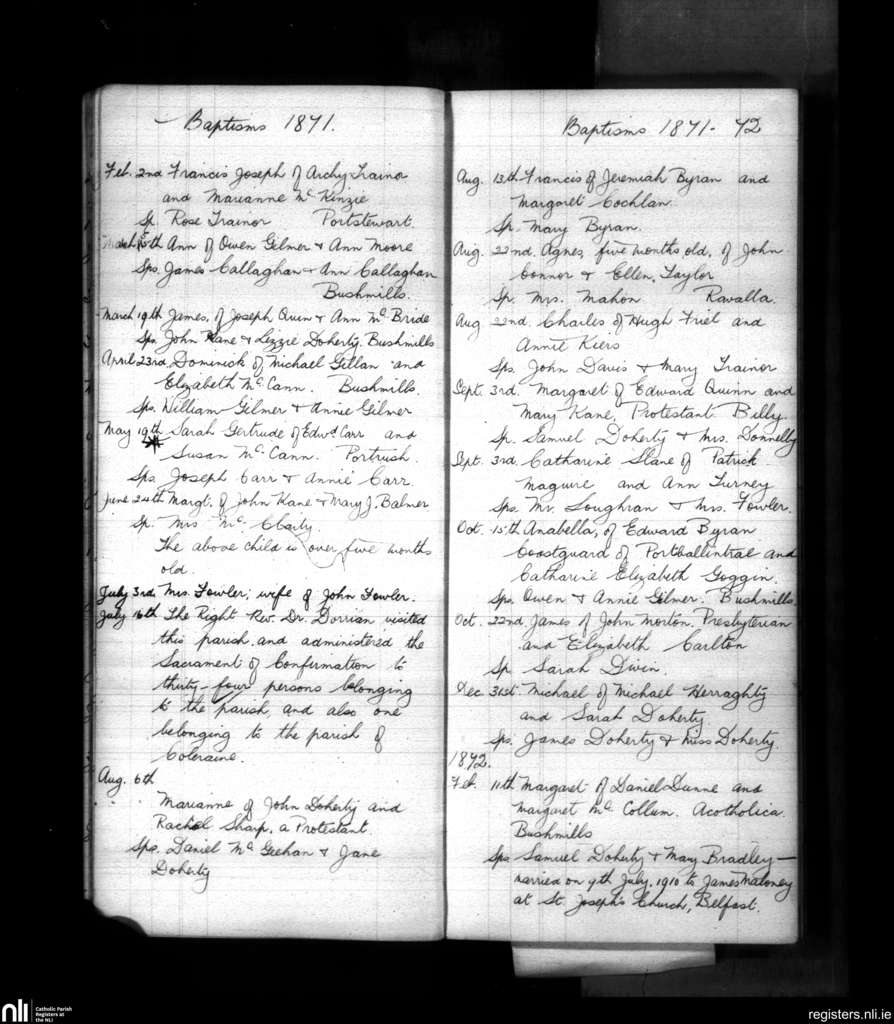 Baptisms 1871.
Feb. 2nd Francis Joseph of Archy Trainor
and Marianne Mc Kinzie
Sp. Rose Trainor Portstewart
March 15th Ann of Owen Gilmer & Ann Moore
Sps. James Callaghan & Ann Callaghan
Bushmills.
March 19th James, of Joseph Quin & Ann Mc Bride
Sps. John Kane & Lizzie Doherty. Bushmills
April 23rd Dominick of Michael Gillan and
Elizabeth Mc Cann. Bushmills.
Sps. William Gilmer & Annie Gilmer
May 19th Sarah Gertrude of Edwd. Carr and
Susan Mc Cann. Portrush.
Sps. Joseph Carr & Annie Carr.
June 24th Margt. of John Kane & Mary J. Balmer
Sp. Mrs Mc
The above child is over five months
old.
July 3rd Mrs. Fowler, wife of John Fowler.
July 16th The Right Rev. Dr. Dorrian visited
this parish and administered the
Sacrament of Confirmation to
thirty-four persons belonging
to the parish, and also one
belonging to the parish of
Coleraine.
Aug. 6th
Marianne of John Doherty and
Rachel Sharp, a Protestant.
Sps. Daniel Mc Geehan & Jane
Doherty
Baptisms 1871- 72
Aug. 13th Francis of Jeremiah Byran and
Margaret Cochlan
Sp. Mary Byran.
Aug. 22nd. Agnes, five months old, of John
Connor & Ellen Taylor
Sp. Mrs. Mahon Ravalla.
Aug 22nd Charles of Hugh Friel and
Annie Kiers
Sps. John Davis & Mary Trainor
Sept. 3rd. Margaret of Edward Quinn and
Mary Kane, Protestant. Billy.
Sp. Samuel Doherty & Mrs. Donnelly
Sept. 3rd. Catharine Slane of Patrick
Maguire and Ann Turney
Sps. Mr. Loughran & Mrs. Fowler.
Oct. 15th Anabella, of Edward Byran
Coastguard of Portballintrae and
Catharine Elizabeth Goggin.
Sps. Owen & Annie Gilmer. Bushmills.
Oct. 22nd James of John Morton. Presbyterian
and Elizabeth Carlton
Sp. Sarah Divin.
Dec 31st. Michael of Michael Herraghty
and Sarah Doherty
Sps. James Doherty & Miss Doherty.
1872.
Feb. 11th Margaret of Daniel Dunne and
Margaret Mc Collum. Acotholica.
Bushmills
Sps Samuel Doherty & Mary Bradley—
married on 9th July, 1910 to James Maloney
at St. Joseph's Church, Belfast.
nli Catholic Parish
Registers at
the NLI
registers.nli.ie